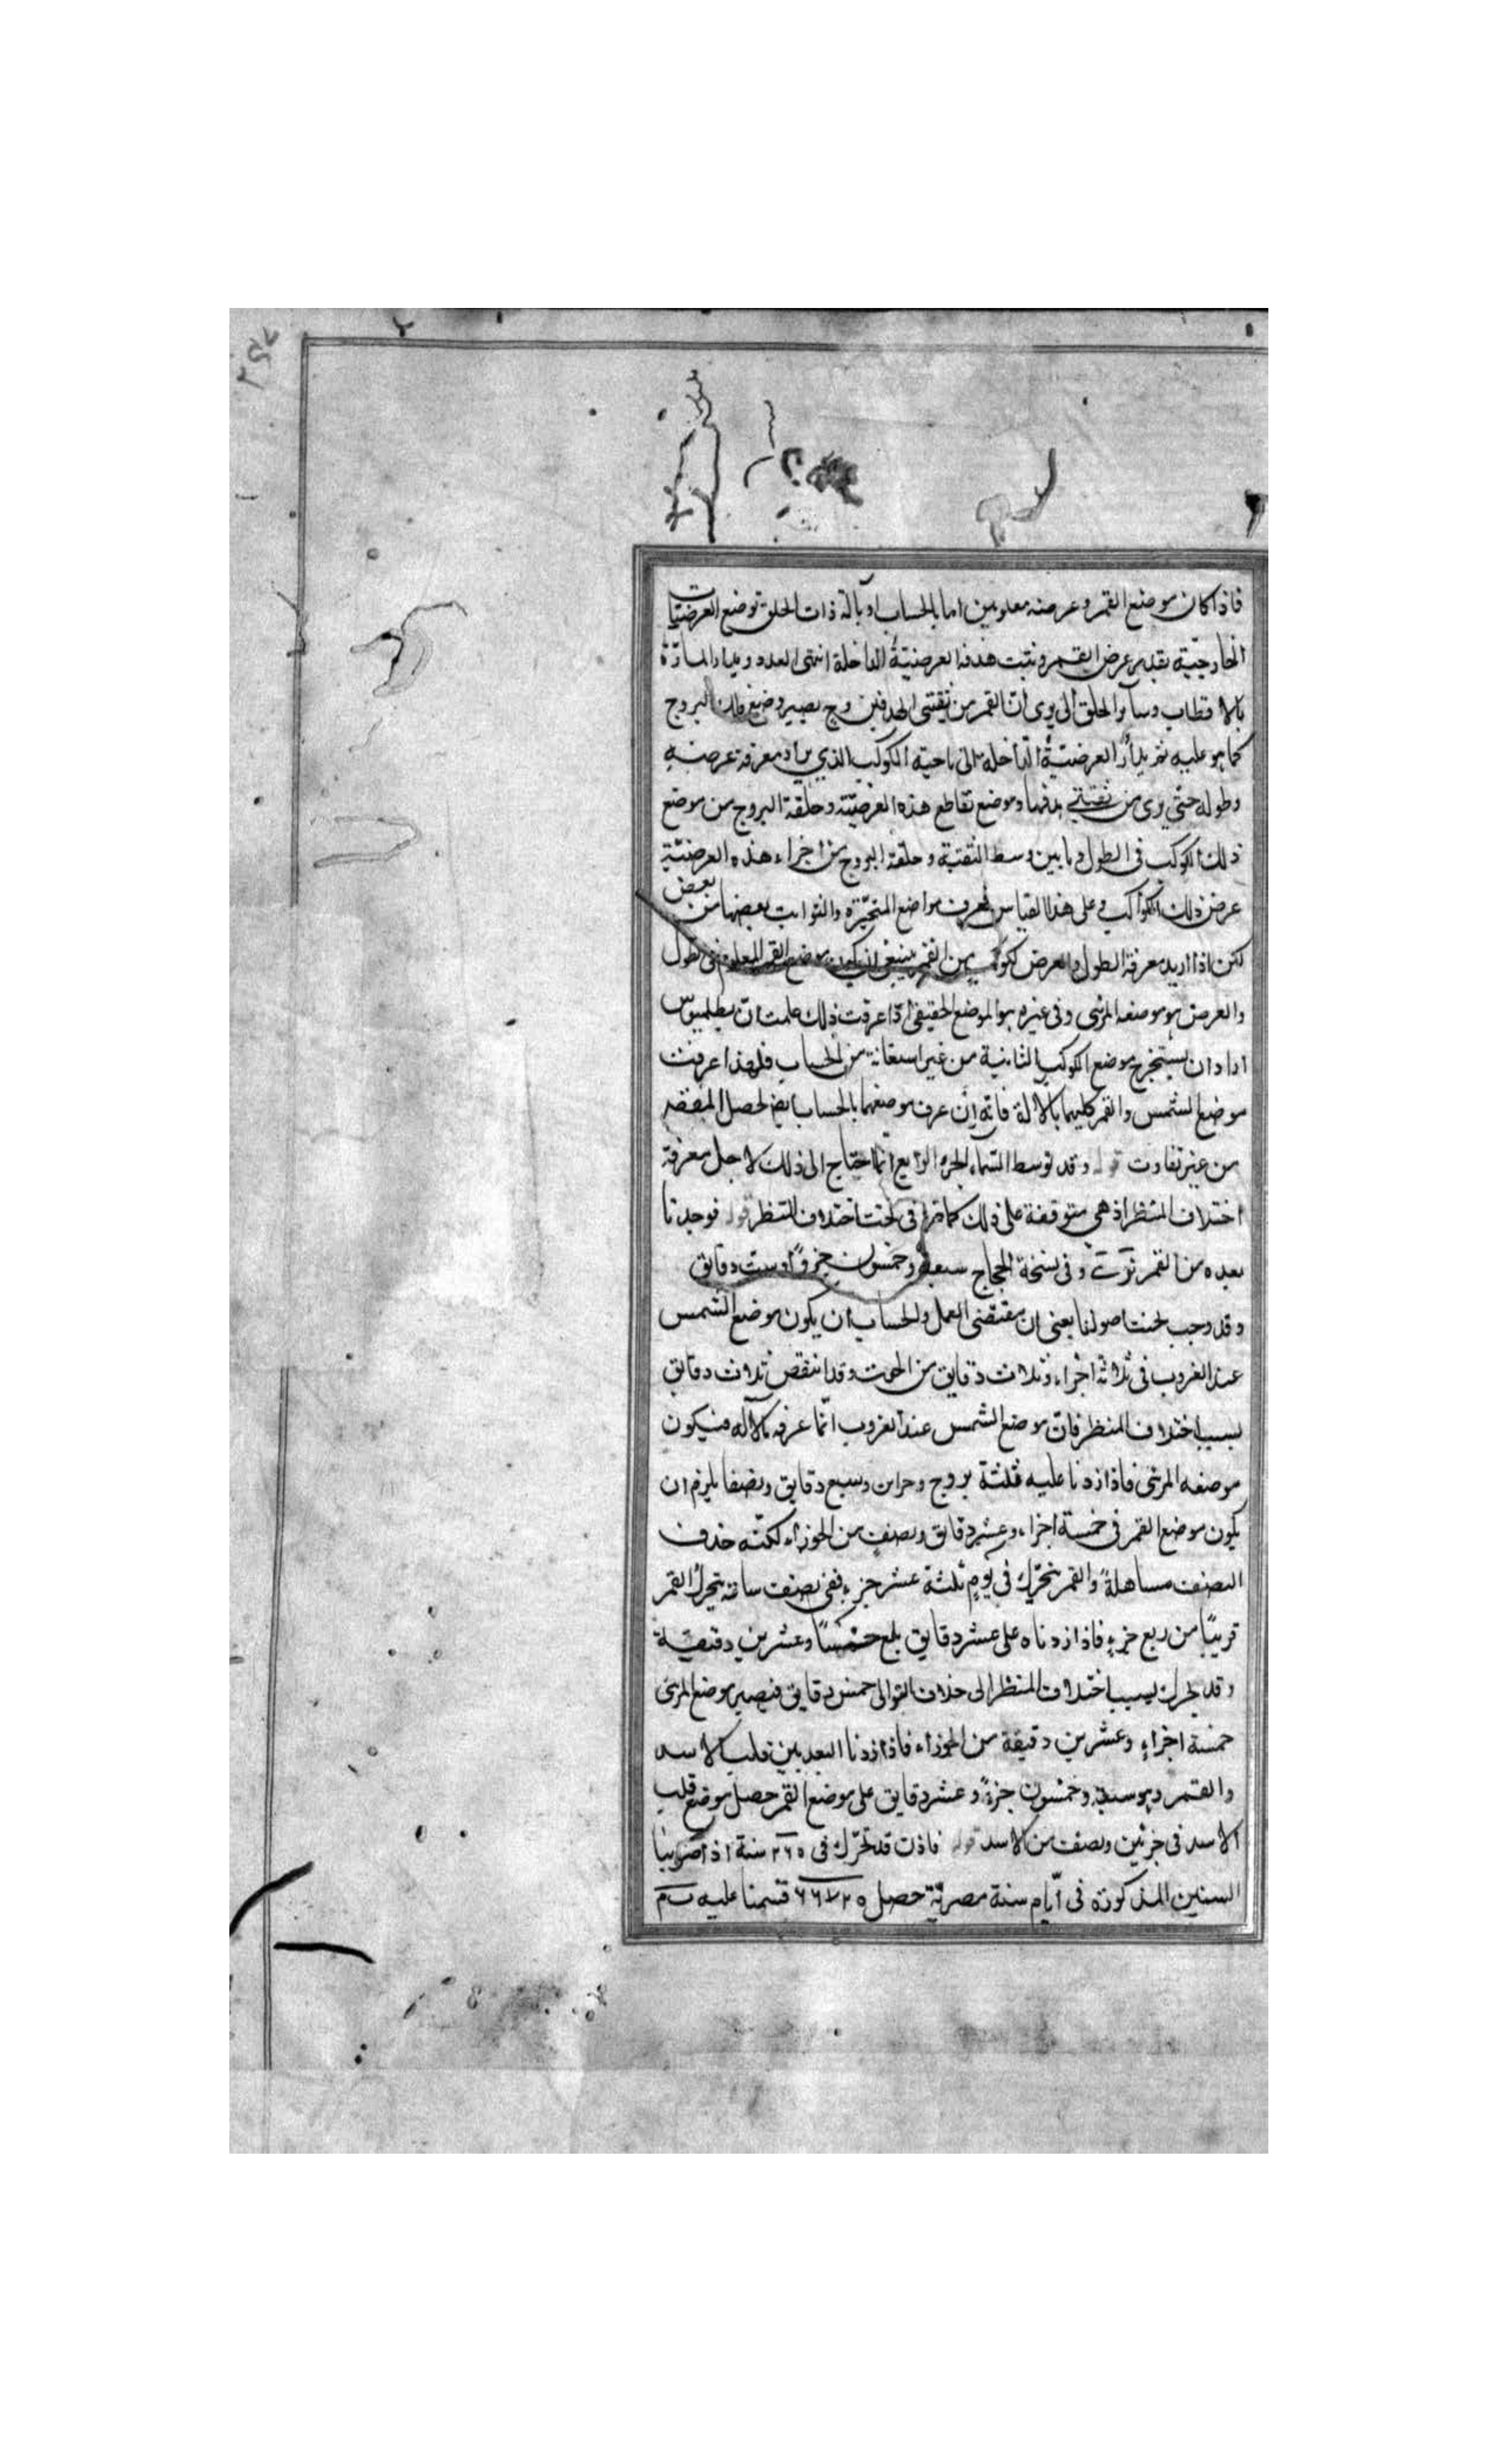 فاذا كان موضع القمر وعرضه معلومين اما بالحساب او بآلة ذات الحلق توضع العرضيات
الخارجيّة بقدر عرض القمر ونثبت هدفة العرضيّة الداخلة انتهى العدد ويدار المارّة
بالاقطاب وسائر الحلق الى يرى انّ القمر من ثقبتى الهدفين وح يصير وضع فلك البروج
كما هو عليه ثم يدار العرضيّة الداخلة الى ناحية الكوكب الذي يراد معرفة عرضه
وطوله حتى يرى من ثقبتي هدفيها وموضع تقاطع هذه العرضيّة وحلقة البروج من موضع
ذلك الكوكب فى الطول وما بين وسط الثقبة وحلقة البروج من اجزاء هذه العرضيّة
عرض ذلك الكوكب وعلى هذا القياس تعرف مواضع المتحيّرة والثوابت بعضها من بعض
لكن اذا اريد معرفة الطول والعرض لكوكب من القمر ينبغى ان يكون موضع القمر المعلوم فى الطول
والعرض هو موضعه المرئى وفى غيره هو الموضع الحقيقى اذا عرفت ذلك علمت انّ بطلميوس
اراد ان يستخرج موضع الكوكب الثانية من غير استعانة من الحساب فلهذا عرفت
موضع الشمس والقمر كليهما بالآلة فانّه ان عرف موضعهما بالحساب ايضا يحصل المقصد
من غير تفاوت قوله وقد توسط السّماء الجزء الرابع انّما احتاج الى ذلك لاجل معرفة
اختلاف المنظر اذ هى متوقفة على ذلك كما مرّ فى تحت اختلاف المنظر قوله فوجدنا
بعده من القمر وفى نسخة الحجاج سبعة وخمسون جزوًا وست دقائق
وقد وجب بحسب اصولنا يعنى ان مقتضى العمل والحساب ان يكون موضع الشمس
عند الغروب فى ثلاثة اجزاء وثلاث دقايق من الحوت وقد انتقص ثلاث دقايق
بسبب اختلاف المنظر فانّ موضع الشمس عند الغروب انّما عرفه بالآله فيكون
موضعه المرئى فاذا زدنا عليه ثلثة بروج وجزأين وسبع دقايق ونصفا يلزم ان
يكون موضع القمر فى خمسة اجزاء وعشر دقايق ونصف من الجوزاء لكنّه حذف
النصف مساهلةً والقمر يتحرّك في يومٍ ثلثة عشر جزء ففى نصف ساعة يتحرك القمر
قريبًا من ربع جزء فاذا زدناه على عشر دقايق بلغ خمسًا وعشرين دقيقة
وقد تحرك بسبب اختلاف المنظر الى خلاف التوالى خمس دقايق فيصير موضع المرئى
خمسة اجزاء وعشرين دقيقة من الجوزاء فاذا زدنا البعد بين قلب الاسد
والقمر وهو سبعة وخمسون جزءً وعشر دقايق على موضع القمر حصل موضع قلب
الاسد فى جزئين ونصف من الاسد قوله فاذن قد تحرّك فى ٢٦٥ سنة اذا ضربنا
السنين المذكورة فى ايّام سنة مصريّة حصل ٩٦٧٢٥ قسمنا عليه